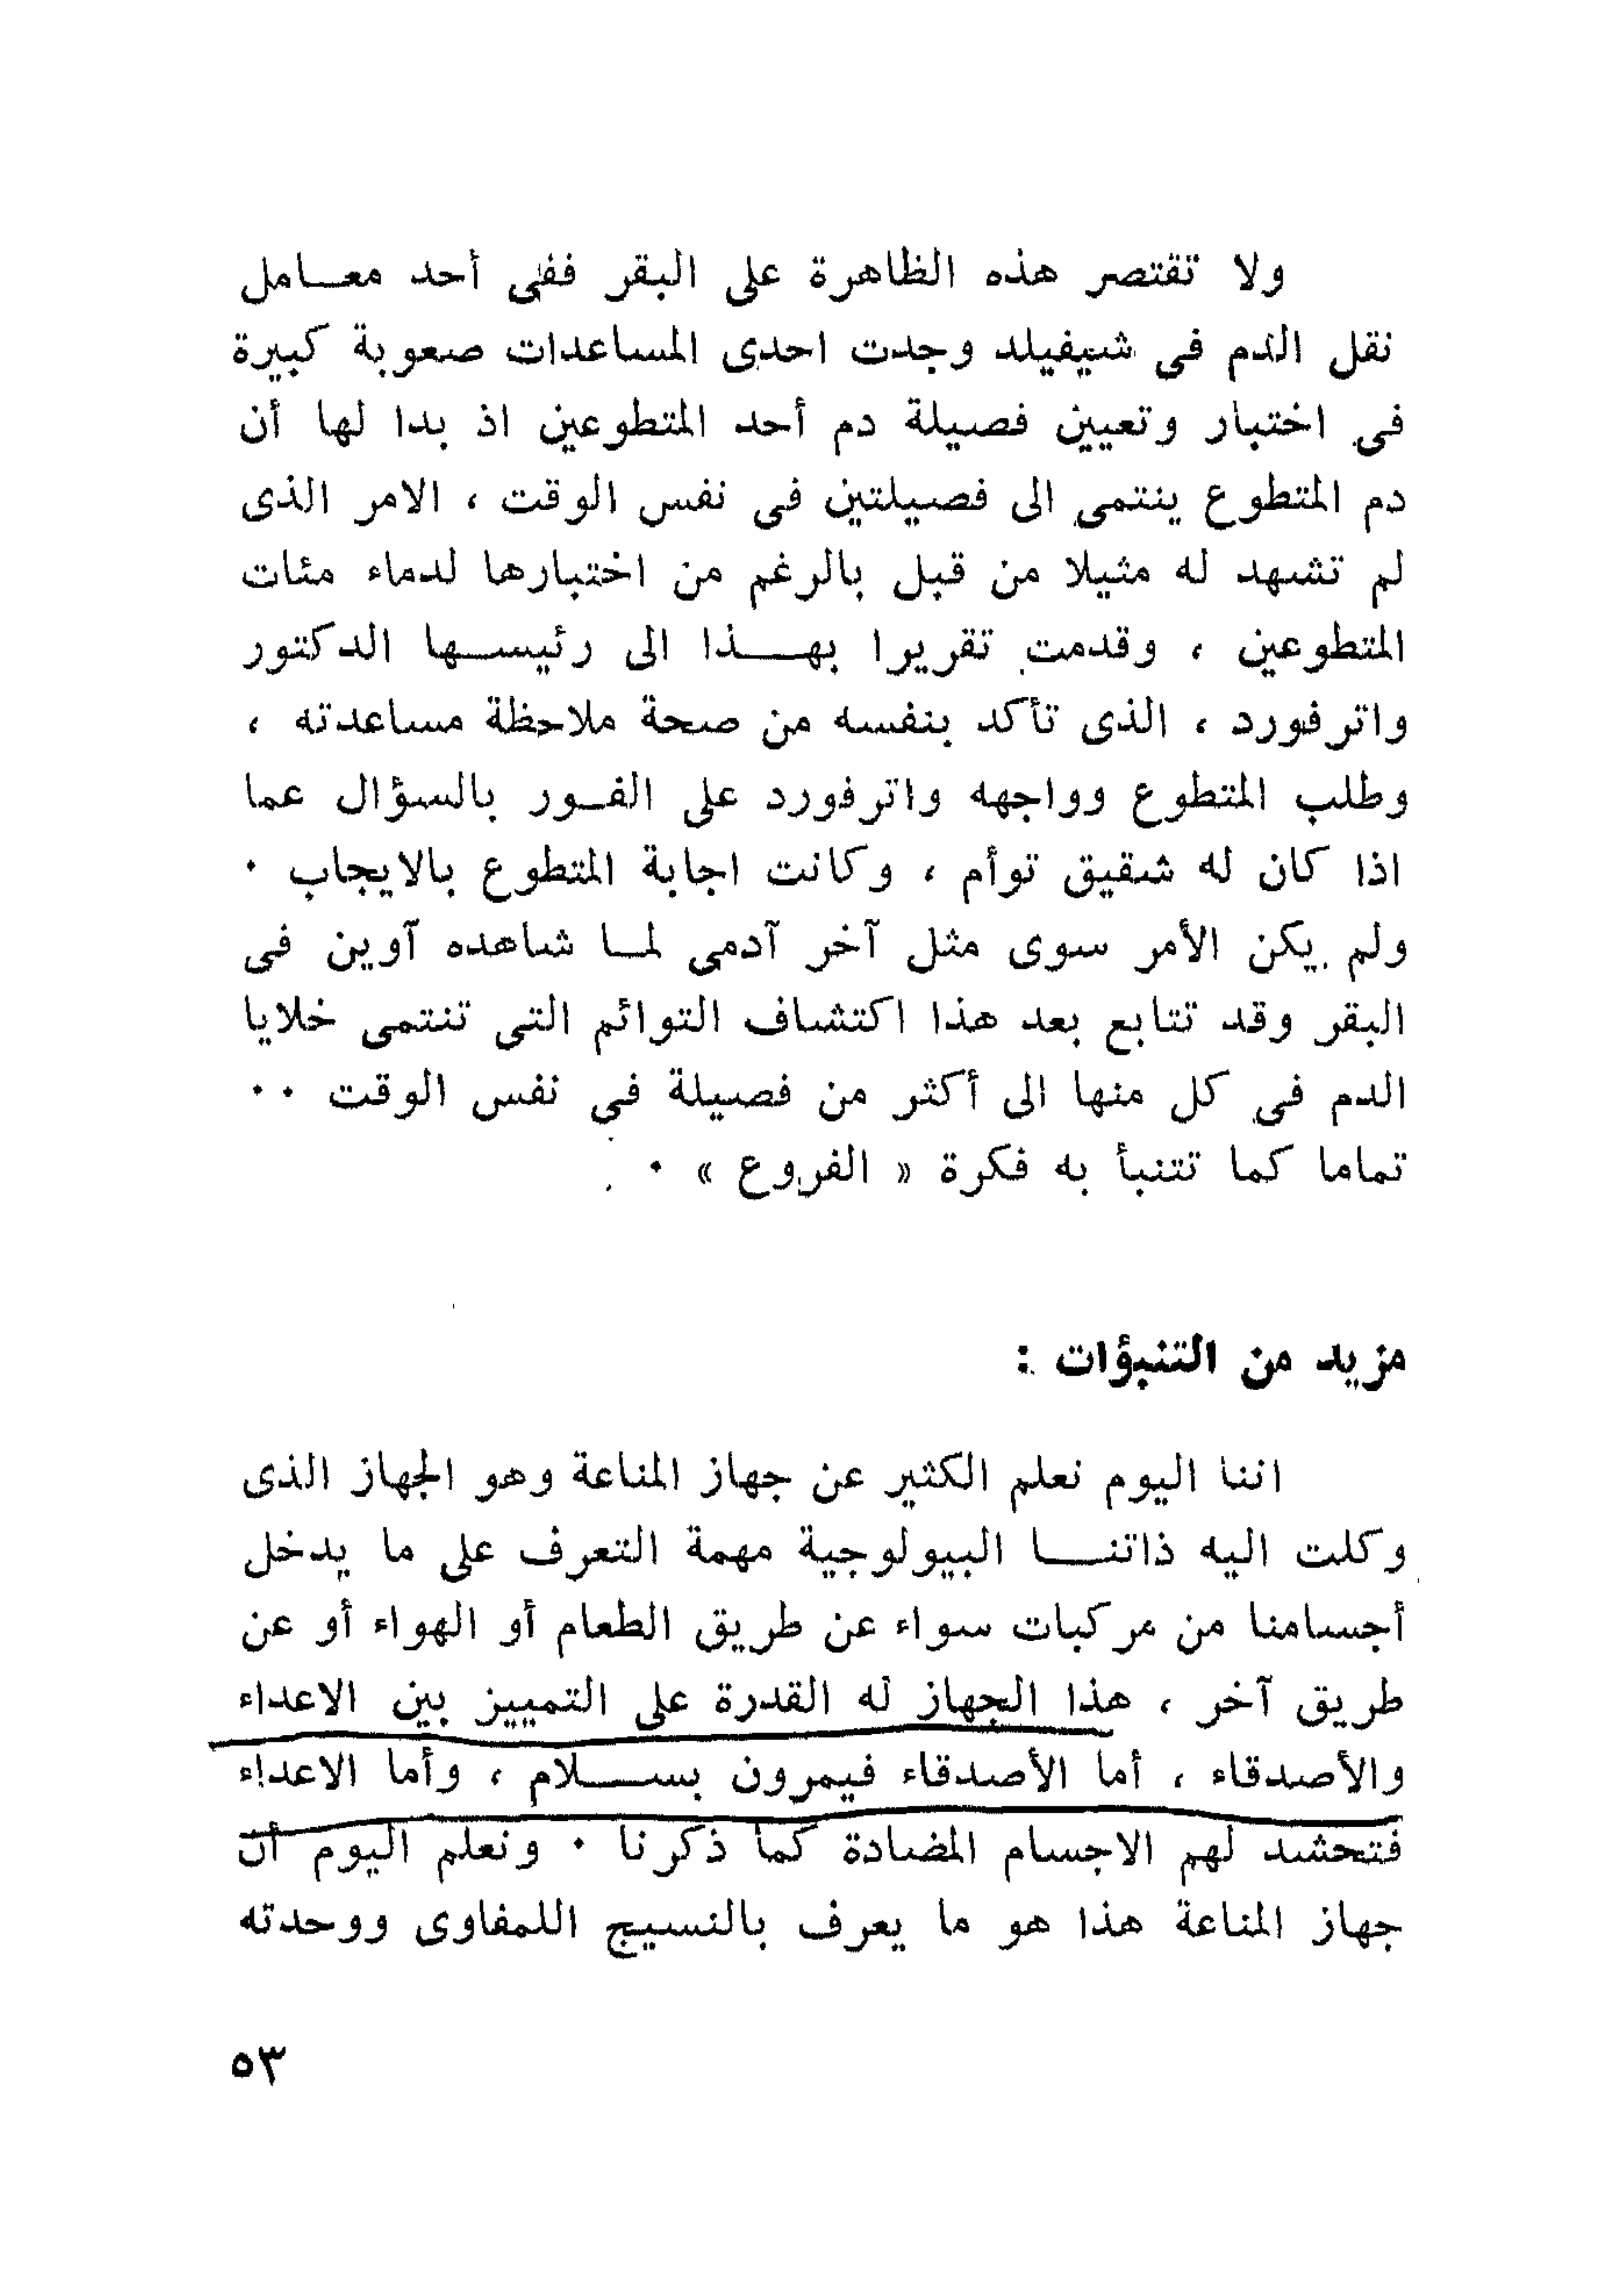 ولا تقتصر هذه الظاهرة على البقر ففى أحد معامل
نقل الدم فى شيفيلد وجدت احدى المساعدات صعوبة كبيرة
فى اختبار وتعيين فصيلة دم أحد المتطوعين اذ بدا لها أن
دم المتطوع ينتمى الى فصيلتين فى نفس الوقت ، الامر الذى
لم تشهد له مثيلا من قبل بالرغم من اختبارها لدماء مئات
المتطوعين ، وقدمت تقريرا بهذا الى رئيسها الدكتور
واترفورد ، الذى تأكد بنفسه من صحة ملاحظة مساعدته ،
وطلب المتطوع وواجهه واترفورد على الفور بالسؤال عما
اذا كان له شقيق توأم ، وكانت اجابة المتطوع بالايجاب ٠
ولم يكن الأمر سوى مثل آخر آدمى لما شاهده آوين فى
البقر وقد تتابع بعد هذا اكتشاف التوائم التى تنتمى خلايا
الدم فى كل منها الى أكثر من فصيلة في نفس الوقت ٠٠
تماما كما تتنبأ به فكرة « الفروع » ٠
مزيد من التنبؤات :
اننا اليوم نعلم الكثير عن جهاز المناعة وهو الجهاز الذى
وكلت اليه ذاتنا البيولوجية مهمة التعرف على ما يدخل
أجسامنا من مركبات سواء عن طريق الطعام أو الهواء أو عن
طريق آخر ، هذا الجهاز له القدرة على التمييز بين الاعداء
والأصدقاء ، أما الأصدقاء فيمرون بسلام ، وأما الاعداء
فتحشد لهم الاجسام المضادة كما ذكرنا ٠ ونعلم اليوم أن
جهاز المناعة هذا هو ما يعرف بالنسيج اللمفاوى ووحدته
٥٣